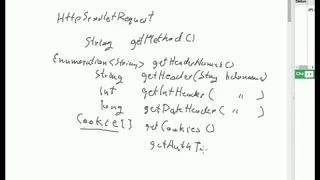 HttpServletRequest
String getMethod()
Enumeration<String> getHeaderNames()
String getHeader(String
int getIntHeader( " )
long getDateHeader( " )
Cookie[] getCookies()
getAuthTy